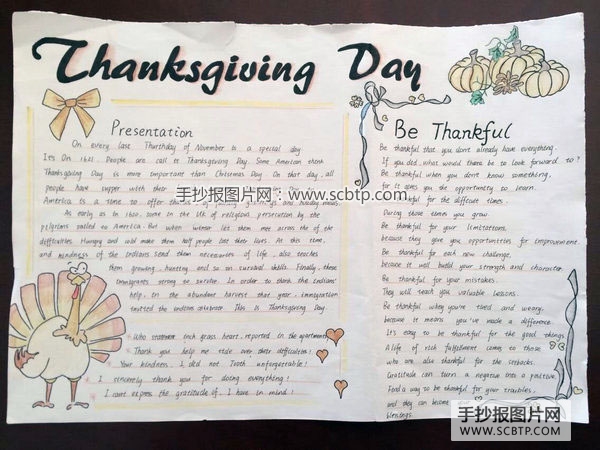 Thanksgiving Day
Presentation
On every last Thurthday of November is a special day
It's On 1621. People are call it Thanksgiving Day. Some American think
Thanksgiving Day is more important than Christmas Day. On that day, all
people have supper with their
America is a time to offer thanks, of family
手抄报图片网:www.scbtp.com
As early as in 1620, some in the UK of religious persecution by the
pilgrims sailed to America. But when winter let them met across the of the
difficulties. Hungry and cold make them half people lost their lives. At this time,
and kindness of the Indians send them necessaries of life, also teaches
them growing, hunting and so on survival skills. Finally, these
immigrants strong to survive. In order to thank the Indians'
help, in the abundant harvest that year, immigration
invited the Indians celebrate. This is Thanksgiving Day.
Who statement inch grass heart, reported in the
Thank you help me tide over these difficulties!
Your kindness, I did not Tooth unforgetable!
I sincerely thank you for doing everything!
I cant express the gratitude of. I have in mind!
Be Thankful
Be thankful that you don't already have everything.
If you did, what would there be to look forward to?
Be thankful when you don't know something,
for it gives you the opportunity to learn.
Be thankful for the difficult times.
During those times you grow.
Be thankful for your limitations,
because they give you opportunities for improvement.
Be thankful for each new challenge,
because it will build your strength and character.
Be thankful for your mistakes.
They will teach you valuable lessons.
Be thankful when you're tired and weary,
because it means you've made a difference.
It's easy to be thankful for the good things.
A life of rich fulfillment comes to those
who are also thankful for the setbacks.
Gratitude can turn a negative into a positive.
Find a way to be thankful for your troubles,
and they can become
blessings.
手抄报图片网
www.SCBTP.com